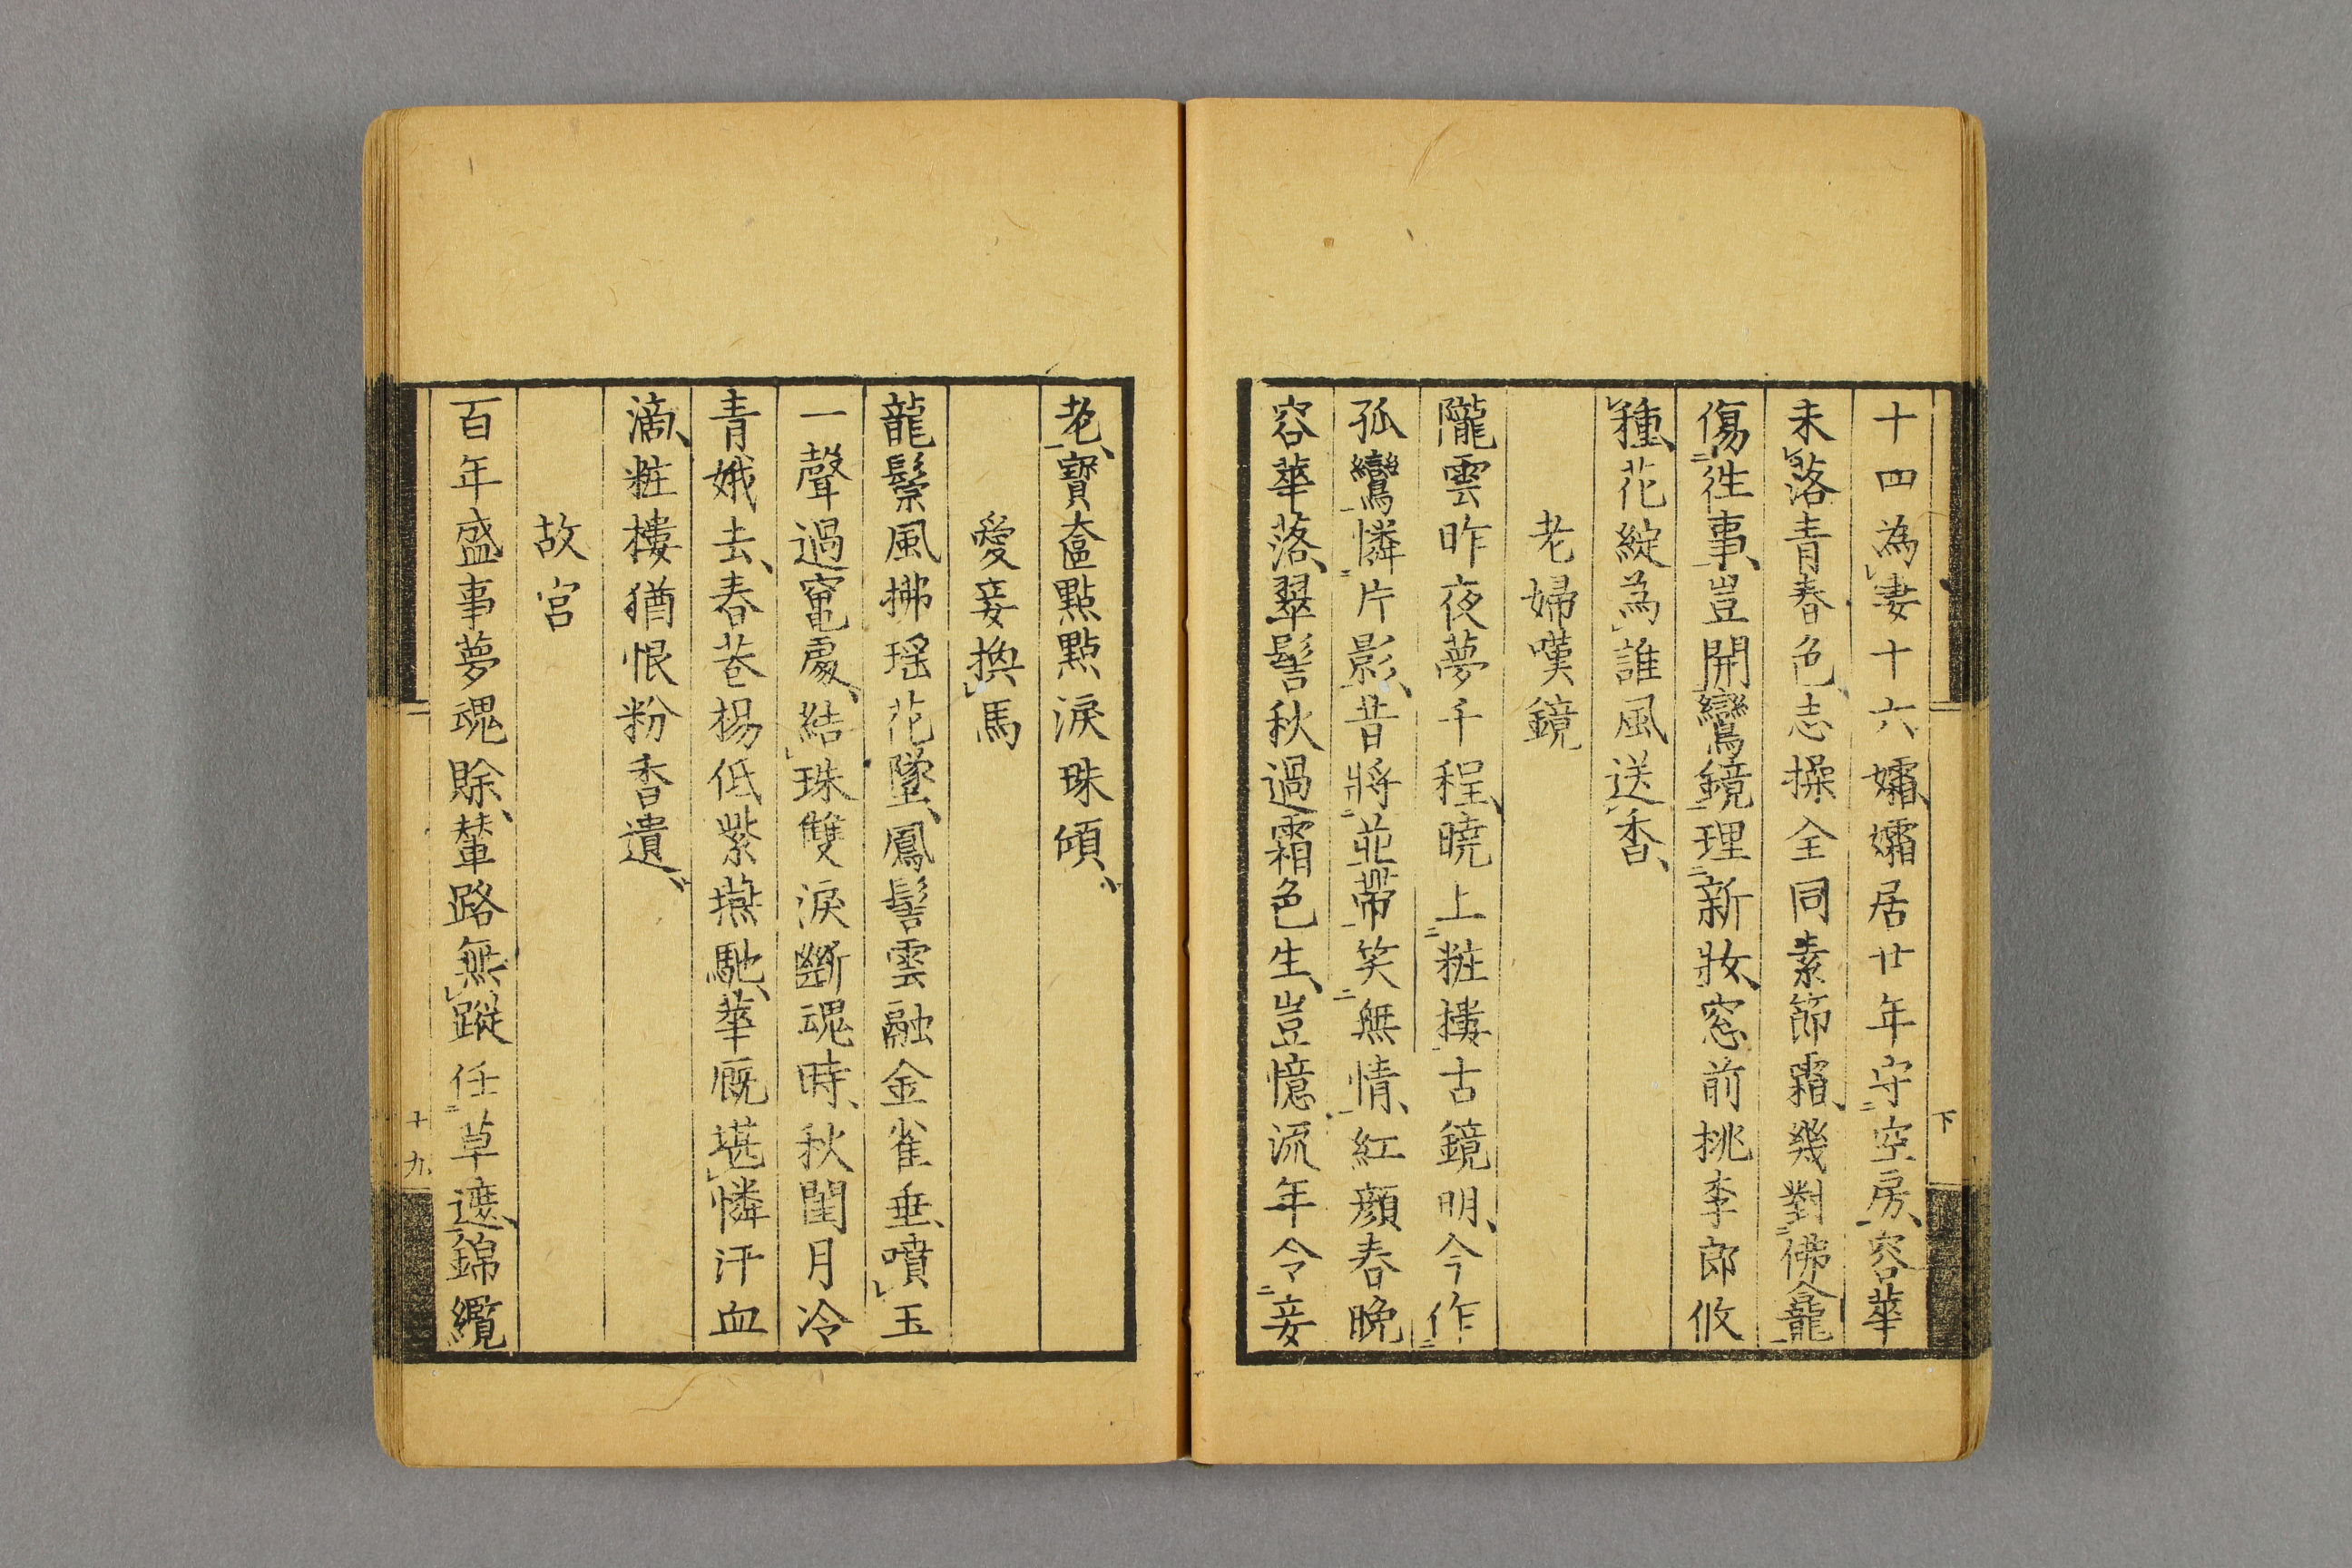 十四為妻十六孀孀居廿年守空房容華
未落青春色志操全同素節霜幾對佛龕
傷徃事豈開鸞鏡理新妝窓前桃李郎攸
種花綻為誰風送香
老婦嘆鏡
隴雲昨夜夢千程曉上粧樓古鏡明今作
孤鸞憐片影昔將並蔕笑無情紅顔春晩
容華落翠髻秋過霜色生豈憶流年令妾
老寶奩點點淚珠傾
愛妾換馬
龍鬃風拂瑶花墜鳳髻雲融金雀垂噴玉
一聲過竃處結珠雙淚斷魂時秋閨月冷
青娥去春巷楊低紫燕馳華廐堪憐汗血
滴粧樓猶恨粉香遺
故宮
百年盛事夢魂賖輦路無蹤任草遮錦纜
下
十九